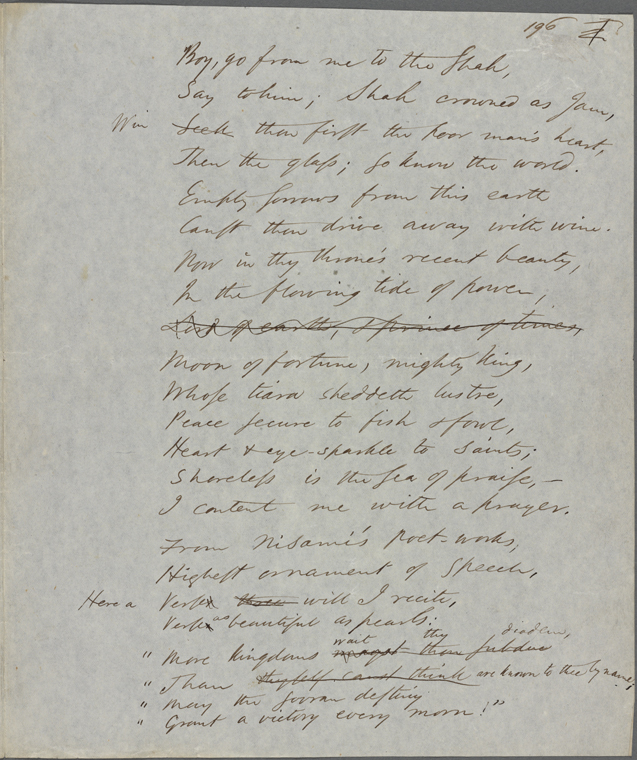 196
Boy, go from me to the Shah,
Say to him; Shah crowned as Jam,
Win Seek thou first the poor man's heart,
Then the glass; so know the world.
Empty sorrows from this earth
Canst thou drive away with wine.
Now in thy throne's recent beauty,
In the flowing tide of power,
Lord of earth, & prince of times,
Moon of fortune, mighty king,
Whose tiara sheddeth lustre,
Peace secure to fish & fowl,
Heart & eye-sparkle to saints;
Shoreless is the sea of praise,—
I content me with a prayer.
From Nisami's poet-works,
Highest ornament of speech,
Here a Verse three will I recite,
Verse as beautiful as pearls:
wait thy diadem,
" More kingdoms mayst thou subdue
" Than thyself canst think are known to thee by name;
" May the sovran destiny
" Grant a victory every morn!"